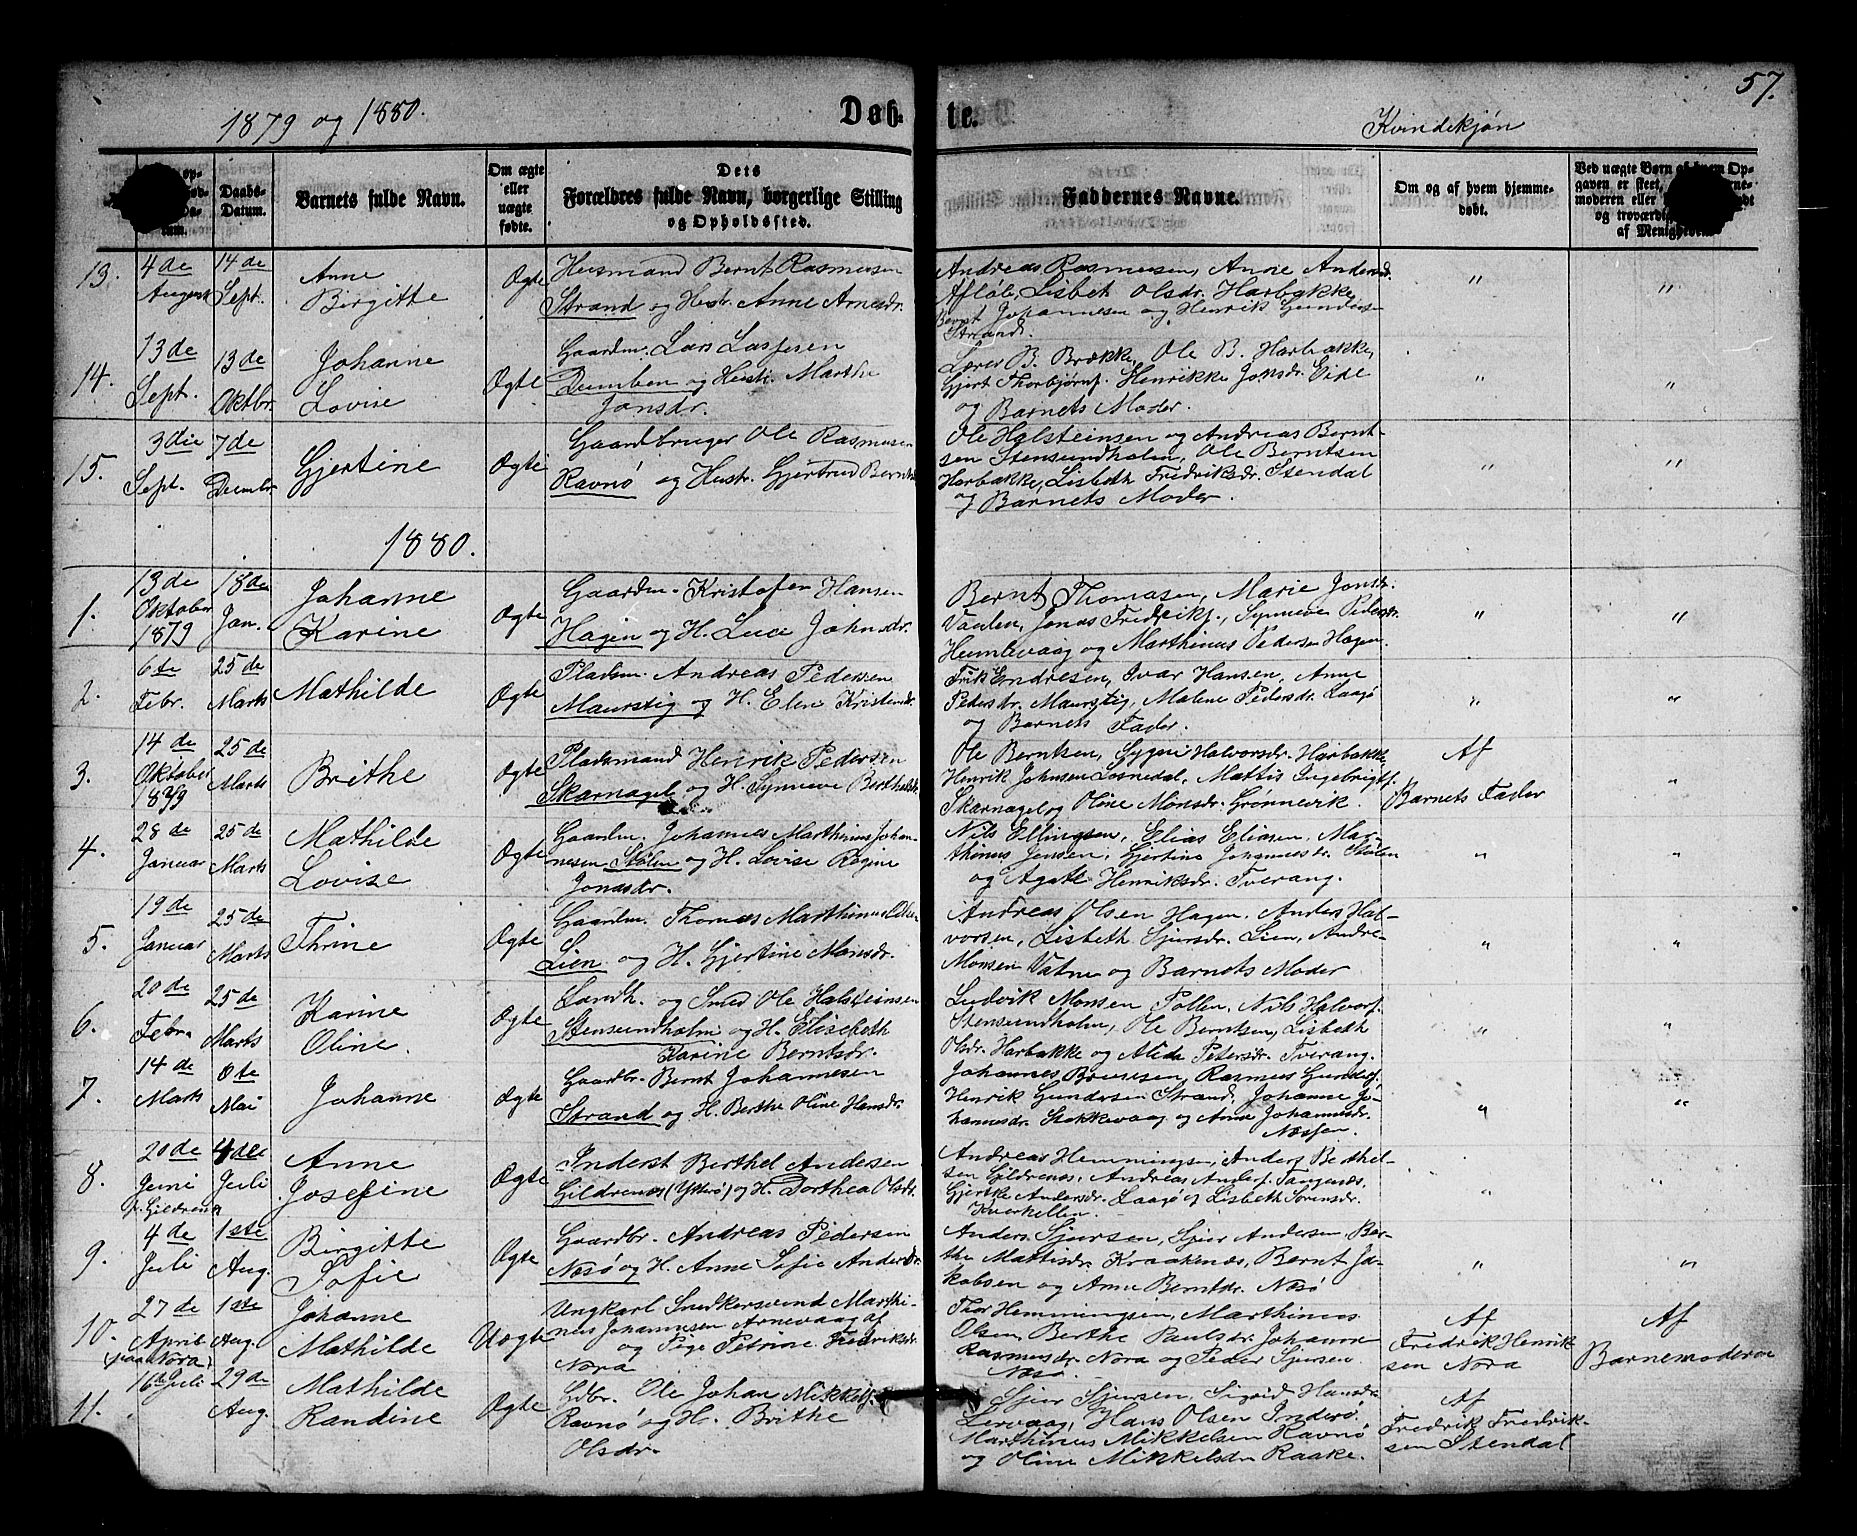 57.
1879 og 1880.
Døb- te.
Kvindekjøn
Daabs-Datum.
Barnets fulde Navn.
Om ægte eller uægte fødte.
Dets Forældres fulde Navn, borgerlige Stilling og Opholdssted.
Faddernes Navne.
Om og af hvem hjemmedøbt.
Ved uægte Børn af hvem Opgaven er skeet,
moderen eller
og troværdig
af Menigheden.
13. 4de August 14de Sept. Anne Birgitte Ægte
Husmand Bernt Rasmussen
Strand og Hustr. Anne Arnesdr.
Andreas Rasmussen, Anne Andersd.
Afløb, Lisbet Olsdr. Harbakke,
Bernt Johannesen og Henrik Gunders.
Strand.
" "
14. 13de Sept. 13de Oktbr. Johanne Lovise Ægte
Gaardm. Lars Lassesen
Dumben og Hustr. Marthe
Jonsdr.
Lærer B. Brække, Ole B. Harbakke,
Gjert Thorbjørns. Henrikke Jonsdr. Eide
og Barnets Moder.
" "
15. 3die Sept. 7de Decmbr Gjertine Ægte
Gaardbruger Ole Rasmusen
Ravnø og Hustr. Gjertrud Berntsd.
Ole Halsteinsen og Andreas Bernt-
sen Stensundholm, Ole Berntsen
Harbakke, Lisbeth Fredriksdr. Stendal
og Barnets Moder.
" "
1880.
1. 13de Oktober 1879 18de Jan. Johanne Karine Ægte
Gaardm. Kristofer Hansen
Hagen og H. Lucie Johnsdr.
Bernt Thomasen, Marie Jonsdr.
Vaalen, Jonas Fredriks., Synneve Pedersdr.
Humlevaag og Marthinus Pedersen Hagen.
" "
2. 6te Febr. 25de Marts Mathilde Ægte
Pladsm. Andreas Pedersen
Maurstig og H. Elen Kristensdr.
Erik Endresen, Ivar Hansen, Anne
Pedersdr. Maurstig, Malene Pedersdr. Laagø
og Barnets Fader.
" "
3. 14de Oktober 1879 25de Marts Brithe Ægte
Pladsmand Henrik Pedersen
Skarnagel og H. Synneve Berthelsdr.
Ole Berntsen, Sygni Halvorsdr. Harbakke
Henrik Johnsen Losnedal, Mattis Ingebrigts.
Skarnagel og Oline Monsdr. Grønnevik.
Af
Barnets Fader
"
4. 28de Januar 25de Marts Mathilde Lovise Ægte
Gaardm. Johannes Marthinus Johan-
nesen Stølen og H. Lovise Regine
Jonasdr.
Nils Ellingsen, Elias Eliasen, Mar-
thinus Jensen, Gjertine Johannesdr. Stølen
og Agate Henriksdr. Tverang.
" "
5. 19de Januar 25de Marts Thrine Ægte
Gaardm. Thomas Marthinus Olsen
Lien og H. Gjertine Monsdr.
Andreas Olsen Hagen, Anders Hal-
vorsen, Lisbeth Sjursdr. Lien, Andre-
Monsen Vatne og Barnets Moder
" "
6. 20de Febr. 25de Marts Karine Oline. Ægte
Landh. og Smed Ole Halsteinsen
Stensundholm og H. Elisebeth
Karine Berntsdr.
Ludvik Monsen Pollen, Nils Halvors.
Stensundholm, Ole Berntsen, Lisbeth
Olsdr. Harbakke og Alida Petersdr. Tverang.
" "
7. 14de Marts 6te Mai Johanne Ægte
Gaardbr. Bernt Johannesen
Strand og H. Berthe Oline Hansdr.
Johannes Brunsen, Rasmus Gunders.
Henrik Gundersen Strand, Johanne Jo-
hannesdr. Stokkevaag og Anne Johannesdr.
Nessen.
" "
8. 20de Juni p. Gildrenes 4de Juli Anne Josefine Ægte
Inderst Berthel Andersen
Gildrenes (Ytterø) og H. Dorthea Olsdr.
Andreas Hemmingsen, Anders Berthel-
sen Gildrenes, Andreas Anders. Tangenæs,
Gjertke Andersdr. Laagø og Lisbeth Sørensdr.
Kverhellen.
" "
9. 4de Juli 1ste Aug. Birgitte Sofie Ægte
Gaardbr. Andreas Pedersen
Nesø og H. Anne Sofie Andersdr.
Anders Sjursen, Sjur Andersen, Ber-
the Mattisdr. Kraakenæs, Bernt Ja-
kobsen og Anne Berntsdr. Nesø
" "
10. 27de April (paa Nora) 1ste Aug. Johanne Mathilde Uægte
Ungkarl Snedkersvend Marthi-
nus Johannesen Arnevaag af
og Pige Petrine Fredriksdr.
Nora
Thor Hemmingsen, Marthinus
Olsen, Berthe Paulsdr. Johanne
Rasmusdr. Nora og Peder Sjursen
Nesø.
Af
Fredrik Henrik-
sen Nora
Af
Barnemoderen
11. 16de Juli 29de Aug. Mathilde Randine Ægte
Gdbr. Ole Johan Mikkels.
Ravnø og H. Brithe
Olsdr.
Sjur Sjursen, Sigrid Hansdr.
Lervaag, Hans Olsen Inderø.
Marthinus Mikkelsen Ravnø
og Oline Mikkelsdr. Raake.
Af
Fredrik Fredrik-
sen Stendal